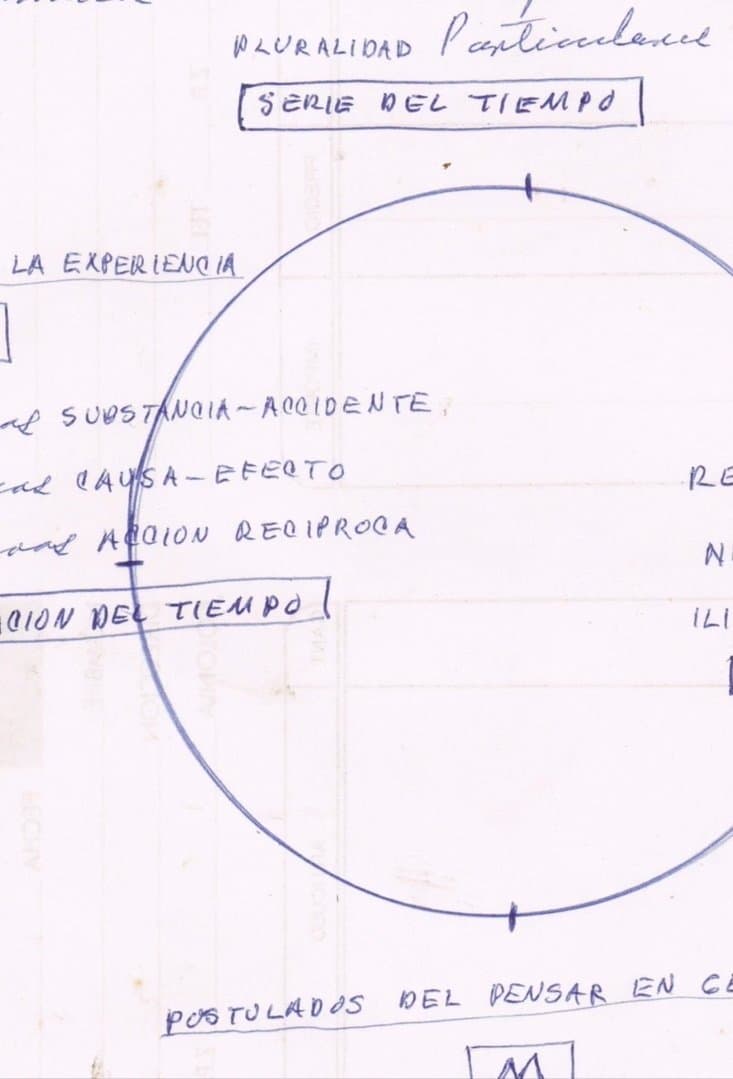 PLURALIDAD Particulares
SERIE DEL TIEMPO
LA EXPERIENCIA
as SUBSTANCIA-ACCIDENTE
cas CAUSA-EFECTO
ivas ACCION RECIPROCA
RE
NE
ILI
CION DEL TIEMPO
POSTULADOS DEL PENSAR EN GE
M